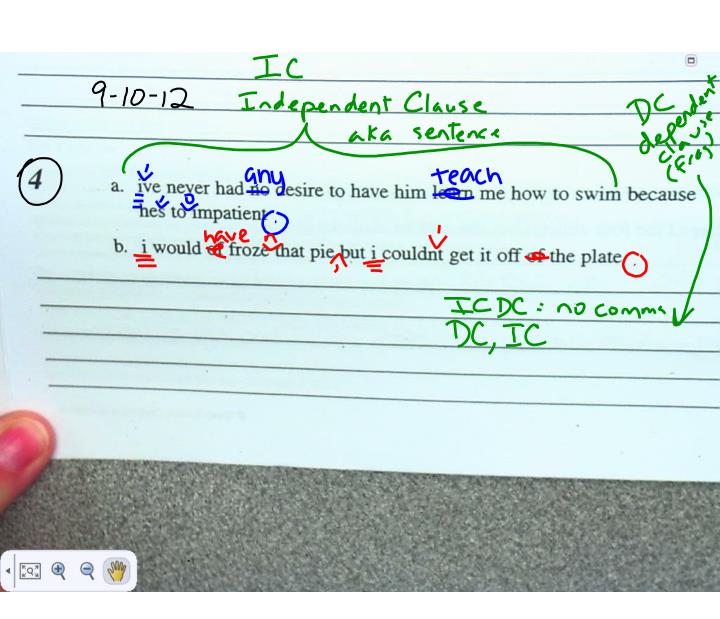 IC
9-10-12 Independent Clause
aka sentence
DC
dependent
clause
(frag)
4
any teach
a. ive never had no desire to have him learn me how to swim because
hes to impatient.
have n
b. i would of froze that pie, but i couldn't get it off of the plate.
ICDC: no comma
DC, IC